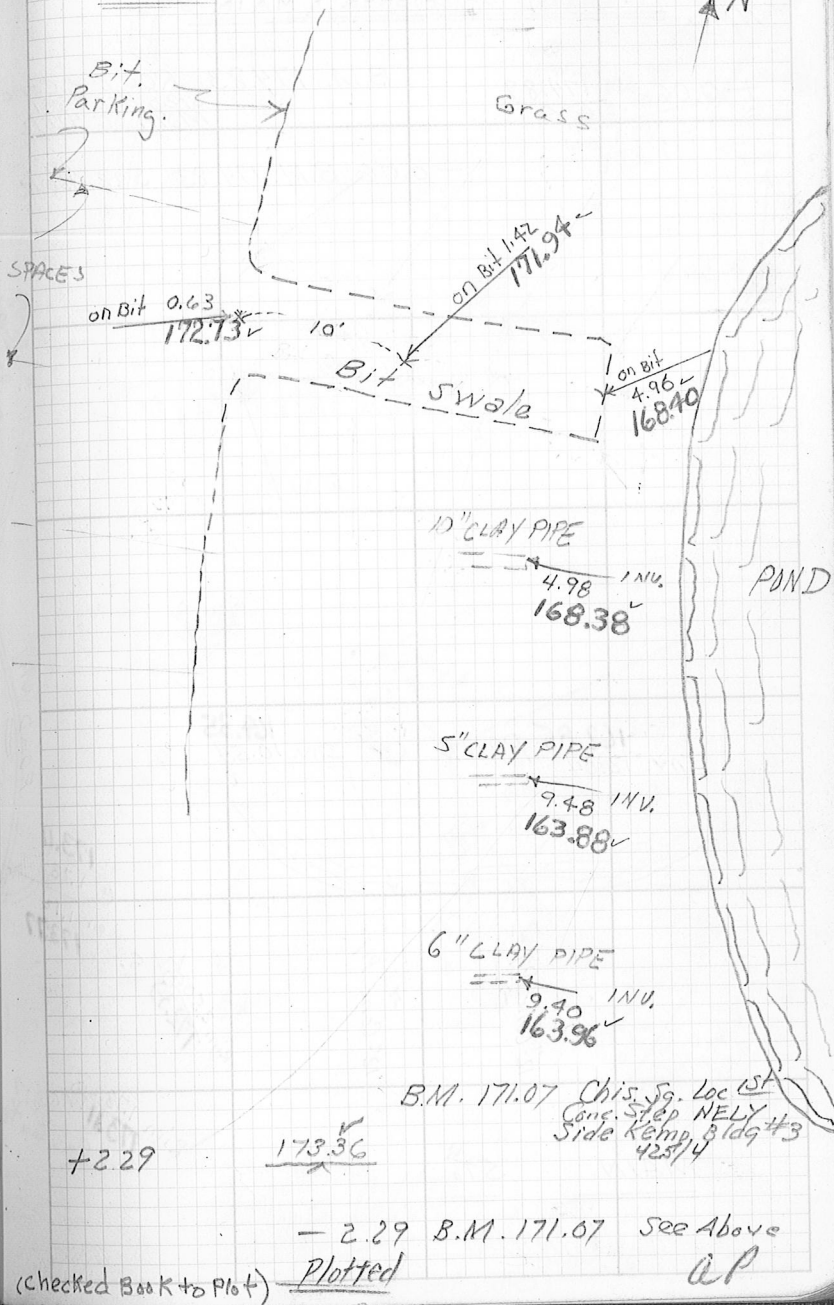 N
Bit.
Parking.
Grass
SPACES
on Bit 1.42
171.94 ✓
on Bit 0.63
172.73 ✓
10'
Bit Swale
on Bit
4.96 ✓
168.40
10" CLAY PIPE
4.98 INV.
168.38 ✓
POND
5" CLAY PIPE
9.48 INV.
163.88 ✓
6" CLAY PIPE
9.40 INV.
163.96 ✓
B.M. 171.07 Chis. Sq. Loc 1st
Conc. Step NELY
Side Kemp. Bldg #3
425/4
+2.29 173.36 ✓
- 2.29 B.M. 171.07 See Above
(Checked Book to Plot) Plotted